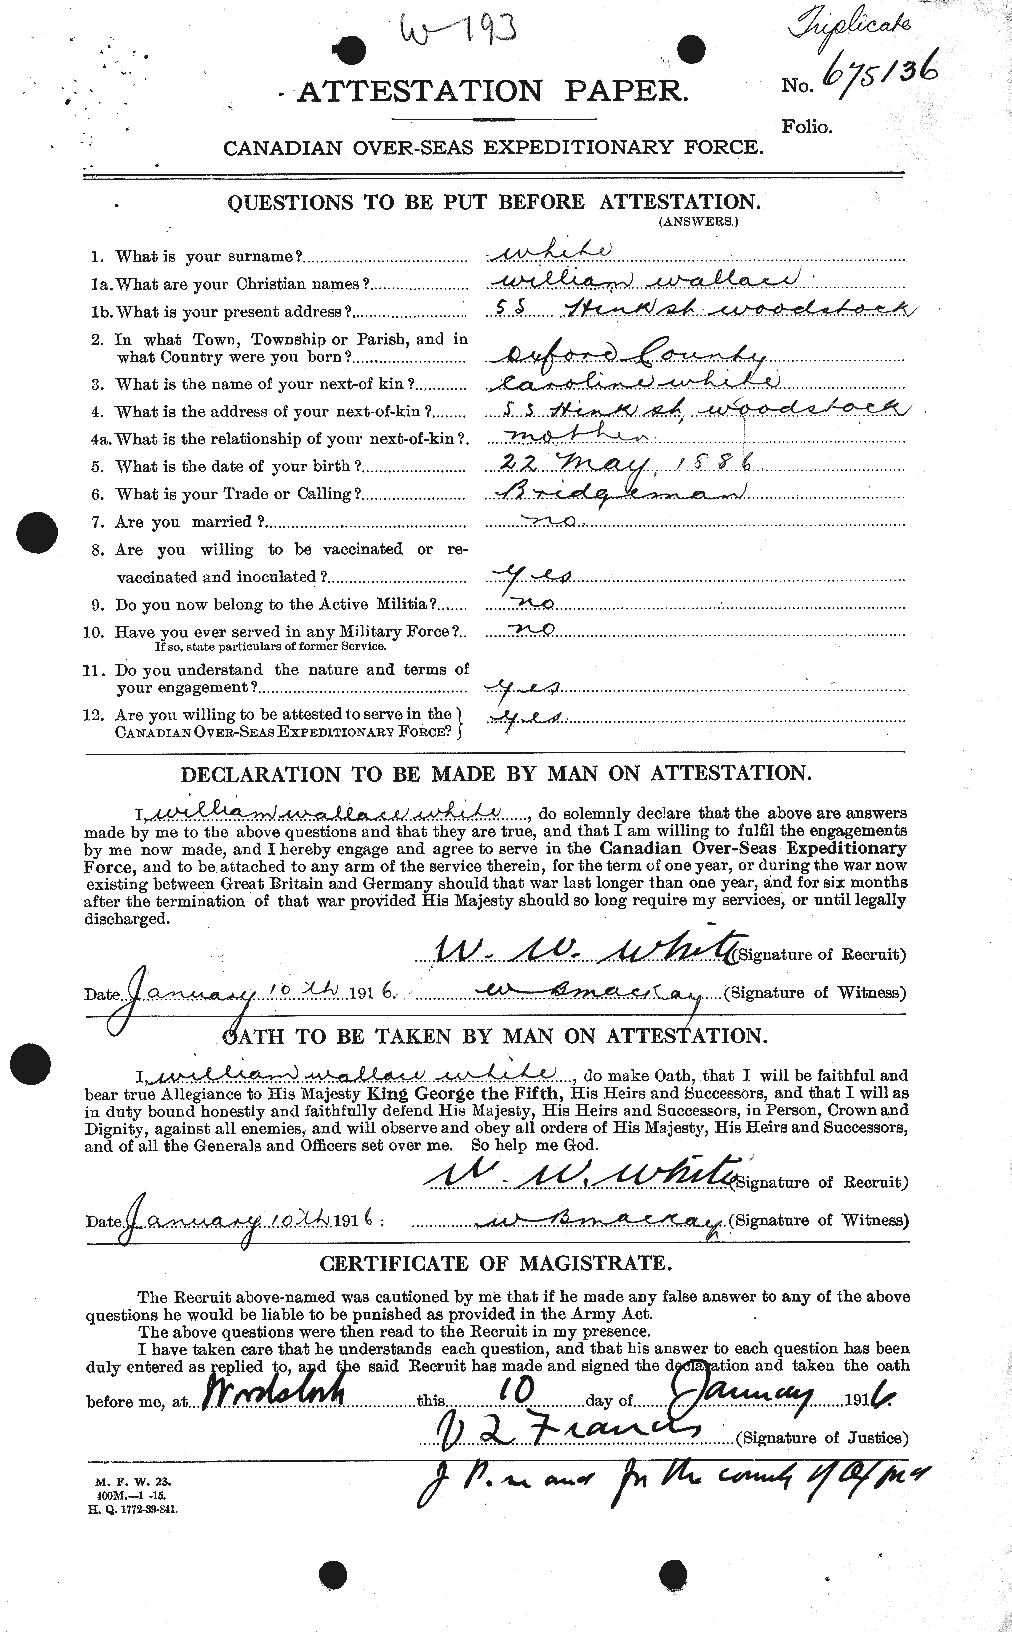 W-193
Triplicate
ATTESTATION PAPER.
No. 675136
Folio.
CANADIAN OVER-SEAS EXPEDITIONARY FORCE.
QUESTIONS TO BE PUT BEFORE ATTESTATION.
(ANSWERS.)
1. What is your surname? White
1a. What are your Christian names? William Wallace
1b. What is your present address? 55 Hink st. Woodstock
2. In what Town, Township or Parish, and in
what Country were you born? Oxford County
3. What is the name of your next-of kin? Caroline White
4. What is the address of your next-of-kin? 55 Hink st, Woodstock
4a. What is the relationship of your next-of-kin? mother
5. What is the date of your birth? 22 May, 1886
6. What is your Trade or Calling? Bridgeman
7. Are you married? no
8. Are you willing to be vaccinated or re-
vaccinated and inoculated? yes
9. Do you now belong to the Active Militia? no
10. Have you ever served in any Military Force? no
If so, state particulars of former Service.
11. Do you understand the nature and terms of
your engagement? yes
12. Are you willing to be attested to serve in the
CANADIAN OVER-SEAS EXPEDITIONARY FORCE? yes
DECLARATION TO BE MADE BY MAN ON ATTESTATION.
I, William Wallace White, do solemnly declare that the above are answers
made by me to the above questions and that they are true, and that I am willing to fulfil the engagements
by me now made, and I hereby engage and agree to serve in the Canadian Over-Seas Expeditionary
Force, and to be attached to any arm of the service therein, for the term of one year, or during the war now
existing between Great Britain and Germany should that war last longer than one year, and for six months
after the termination of that war provided His Majesty should so long require my services, or until legally
discharged.
W. W. White (Signature of Recruit)
Date January 10th 1916. W B Mackay (Signature of Witness)
OATH TO BE TAKEN BY MAN ON ATTESTATION.
I, William Wallace White, do make Oath, that I will be faithful and
bear true Allegiance to His Majesty King George the Fifth, His Heirs and Successors, and that I will as
in duty bound honestly and faithfully defend His Majesty, His Heirs and Successors, in Person, Crown and
Dignity, against all enemies, and will observe and obey all orders of His Majesty, His Heirs and Successors,
and of all the Generals and Officers set over me. So help me God.
W. W. White (Signature of Recruit)
Date January 10th 1916: W B Mackay (Signature of Witness)
CERTIFICATE OF MAGISTRATE.
The Recruit above-named was cautioned by me that if he made any false answer to any of the above
questions he would be liable to be punished as provided in the Army Act.
The above questions were then read to the Recruit in my presence.
I have taken care that he understands each question, and that his answer to each question has been
duly entered as replied to, and the said Recruit has made and signed the declaration and taken the oath
before me, at Woodstock this 10 day of January 1916.
Francis (Signature of Justice)
J P. in and for the county of Oxford
M. F. W. 23.
400M.—1-15.
H. Q. 1772-39-841.